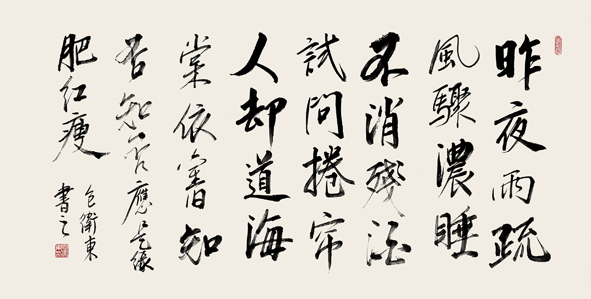 昨夜雨疏
風驟濃睡
不消殘酒
試問捲帘
人却道海
棠依舊知
否知否應是綠
肥紅瘦
包衛東
書之